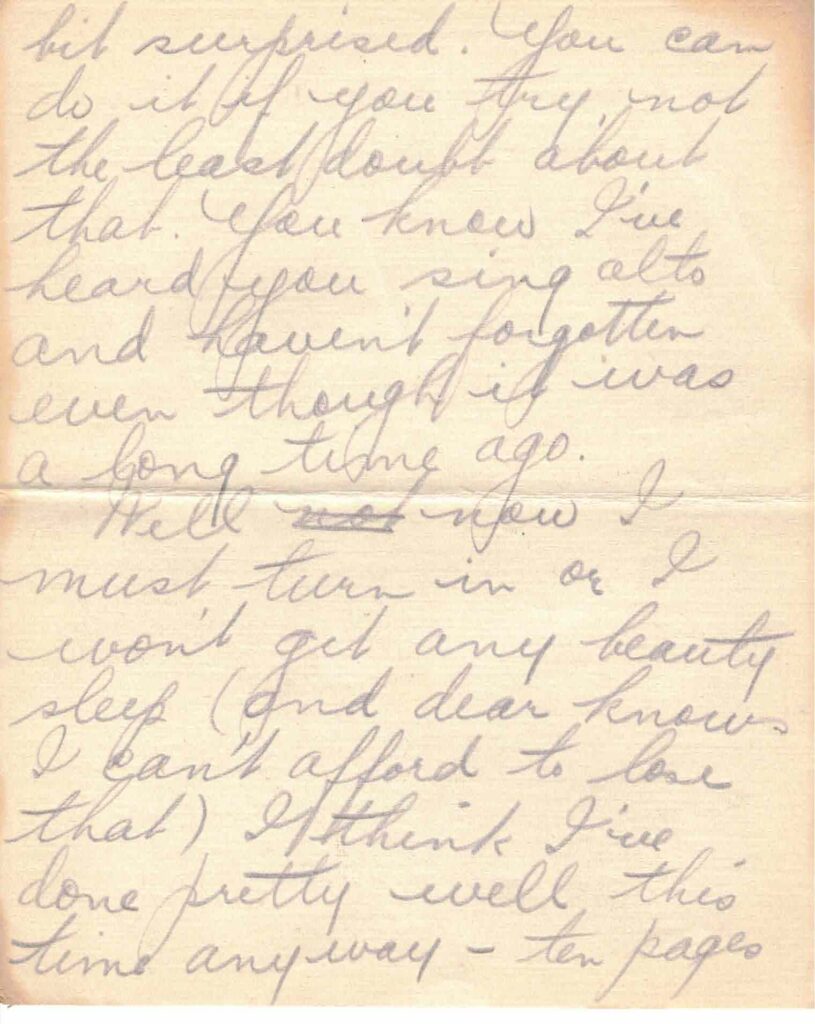 bit surprised. You can
do it if you try, not
the least doubt about
that. You know I've
heard you sing alto
and haven't forgotten
even though it was
a long time ago.
Well not now I
must turn in or I
won't get any beauty
sleep (and dear knows
I can't afford to lose
that) I think I've
done pretty well this
time anyway - ten pages